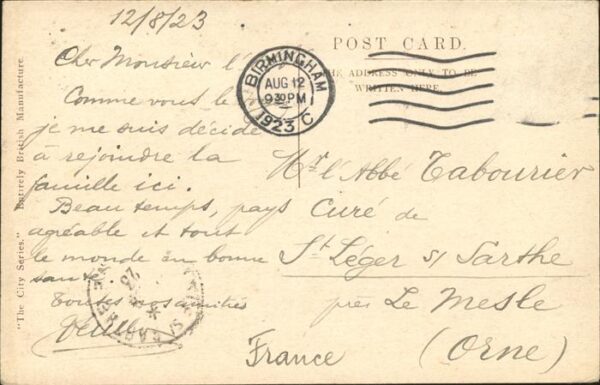 12/8/23
Cher Monsieur l'
Comme vous le
je me suis décidé
à rejoindre la
famille ici.
Beau temps, pays
agréable et tout
le monde en bonne
santé.
Toutes nos amitiés
POST CARD.
THE ADDRESS ONLY TO BE
WRITTEN HERE.
BIRMINGHAM
AUG 12
930PM
1923
C
Mr l'Abbé Tabourier
Curé de
St Léger s/ Sarthe
près Le Mesle
(Orne)
France
"The City Series." Entirely British Manufacture.
23